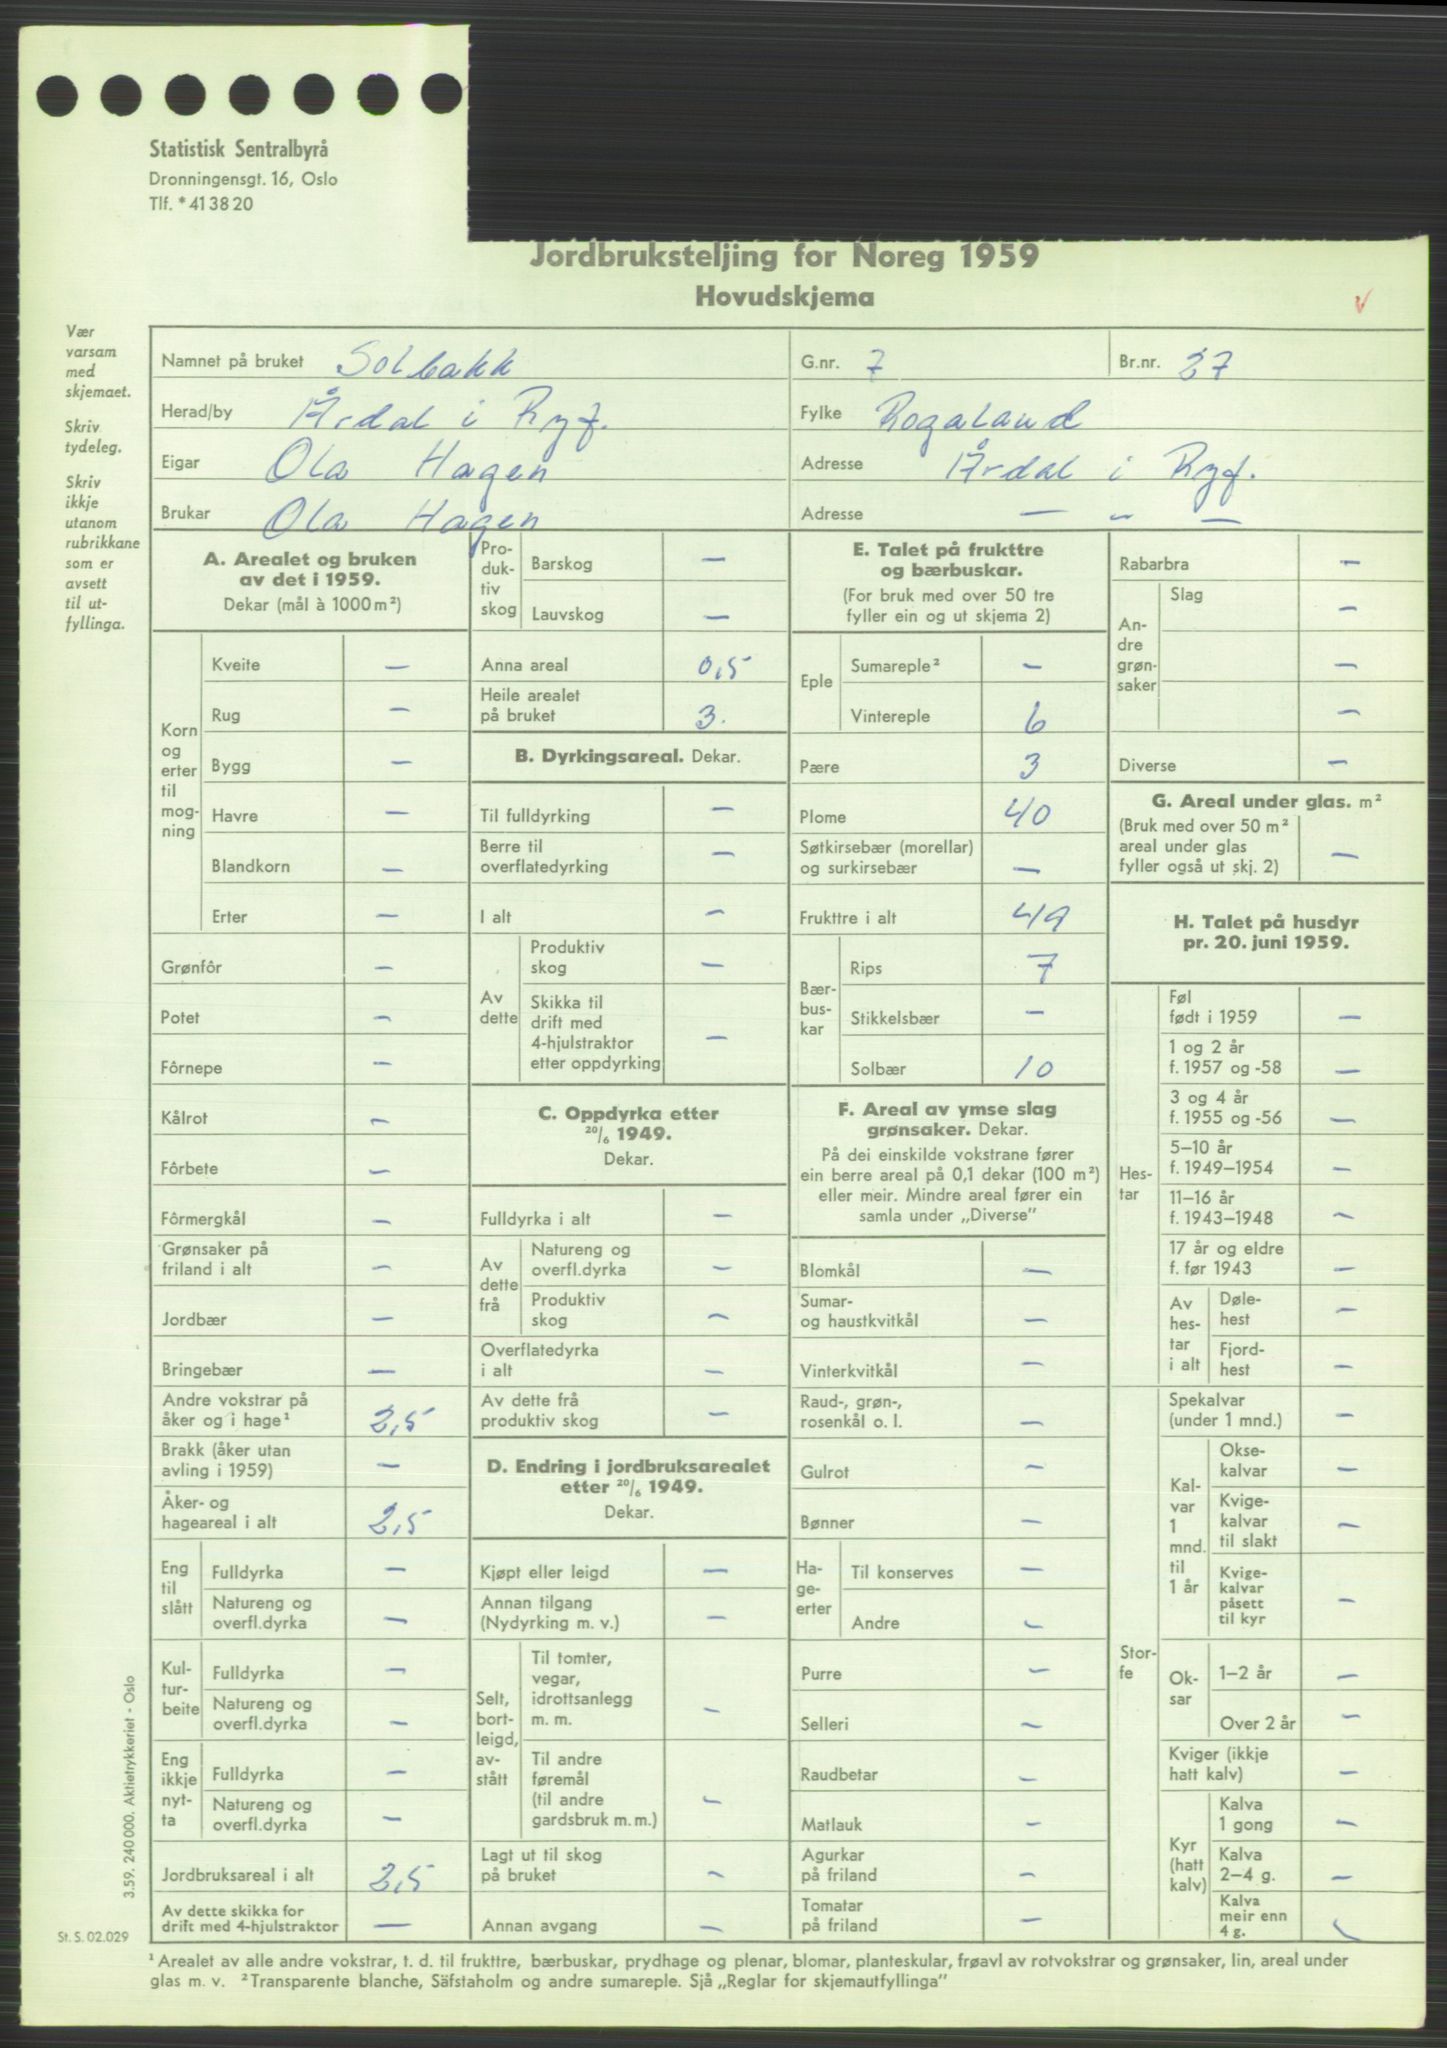 Statistisk Sentralbyrå
Dronningensgt. 16, Oslo
Tlf. * 41 38 20
Jordbruksteljing for Noreg 1959
Hovudskjema
Vær varsam med skjemaet.
Skriv tydeleg.
Skriv ikkje utanom rubrikkane som er avsett til ut-fyllinga.
Namnet på bruket Solbakk G.nr. 7 Br.nr. 27
Herad/by Årdal i Ryf. Fylke Rogaland
Eigar Ola Hagen Adresse Årdal i Ryf.
Brukar Ola Hagen Adresse — „ —
A. Arealet og bruken av det i 1959.
Dekar (mål à 1000 m²)
Korn og erter til mog-ning
Kveite —
Rug —
Bygg —
Havre —
Blandkorn —
Erter —
Grønfôr —
Potet —
Fôrnepe —
Kålrot —
Fôrbete —
Fôrmergkål —
Grønsaker på friland i alt —
Jordbær —
Bringebær —
Andre vokstrar på åker og i hage¹ 2,5
Brakk (åker utan avling i 1959) —
Åker- og hageareal i alt 2,5
Eng til slått
Fulldyrka —
Natureng og overfl.dyrka —
Kul-tur-beite
Fulldyrka —
Natureng og overfl.dyrka —
Eng ikkje nyt-ta
Fulldyrka —
Natureng og overfl.dyrka —
Jordbruksareal i alt 2,5
Av dette skikka for drift med 4-hjulstraktor —
Pro-duk-tiv skog
Barskog —
Lauvskog —
Anna areal 0,5
Heile arealet på bruket 3.
B. Dyrkingsareal. Dekar.
Til fulldyrking —
Berre til overflatedyrking —
I alt —
Av dette
Produktiv skog —
Skikka til drift med 4-hjulstraktor etter oppdyrking —
C. Oppdyrka etter 20/6 1949.
Dekar.
Fulldyrka i alt —
Av dette frå
Natureng og overfl.dyrka —
Produktiv skog —
Overflatedyrka i alt —
Av dette frå produktiv skog —
D. Endring i jordbruksarealet etter 20/6 1949.
Dekar.
Kjøpt eller leigd —
Annan tilgang (Nydyrking m. v.) —
Selt, bort-leigd, av-stått
Til tomter, vegar, idrottsanlegg m. m. —
Til andre føremål (til andre gardsbruk m. m.) —
Lagt ut til skog på bruket —
Annan avgang —
E. Talet på frukttre og bærbuskar.
(For bruk med over 50 tre fyller ein og ut skjema 2)
Eple
Sumareple² —
Vintereple 6
Pære 3
Plome 40
Søtkirsebær (morellar) og surkirsebær —
Frukttre i alt 49
Bær-bus-kar
Rips 7
Stikkelsbær —
Solbær 10
F. Areal av ymse slag grønsaker. Dekar.
På dei einskilde vokstrane fører ein berre areal på 0,1 dekar (100 m²) eller meir. Mindre areal fører ein samla under „Diverse”
Blomkål —
Sumar- og haustkvitkål —
Vinterkvitkål —
Raud-, grøn-, rosenkål o. l. —
Gulrot —
Bønner —
Ha-ge-erter
Til konserves —
Andre —
Purre —
Selleri —
Raudbetar —
Matlauk —
Agurkar på friland —
Tomatar på friland —
Rabarbra —
An-dre grøn-saker
Slag —
—
—
Diverse —
G. Areal under glas. m²
(Bruk med over 50 m² areal under glas fyller også ut skj. 2) —
H. Talet på husdyr pr. 20. juni 1959.
Hes-tar
Føl født i 1959 —
1 og 2 år f. 1957 og -58 —
3 og 4 år f. 1955 og -56 —
5–10 år f. 1949–1954 —
11–16 år f. 1943–1948 —
17 år og eldre f. før 1943 —
Av hes-tar i alt
Døle-hest —
Fjord-hest —
Stor-fe
Spekalvar (under 1 mnd.) —
Kal-var 1 mnd. til 1 år
Okse-kalvar —
Kvige-kalvar til slakt —
Kvige-kalvar påsett til kyr —
Ok-sar
1–2 år —
Over 2 år —
Kviger (ikkje hatt kalv) —
Kyr (hatt kalv)
Kalva 1 gong —
Kalva 2–4 g. —
Kalva meir enn 4 g. —
3.59. 240 000. Aktietrykkeriet - Oslo
St. S. 02.029
¹ Arealet av alle andre vokstrar, t. d. til frukttre, bærbuskar, prydhage og plenar, blomar, planteskular, frøavl av rotvokstrar og grønsaker, lin, areal under
glas m. v. ² Transparente blanche, Säfstaholm og andre sumareple. Sjå „Reglar for skjemautfyllinga”